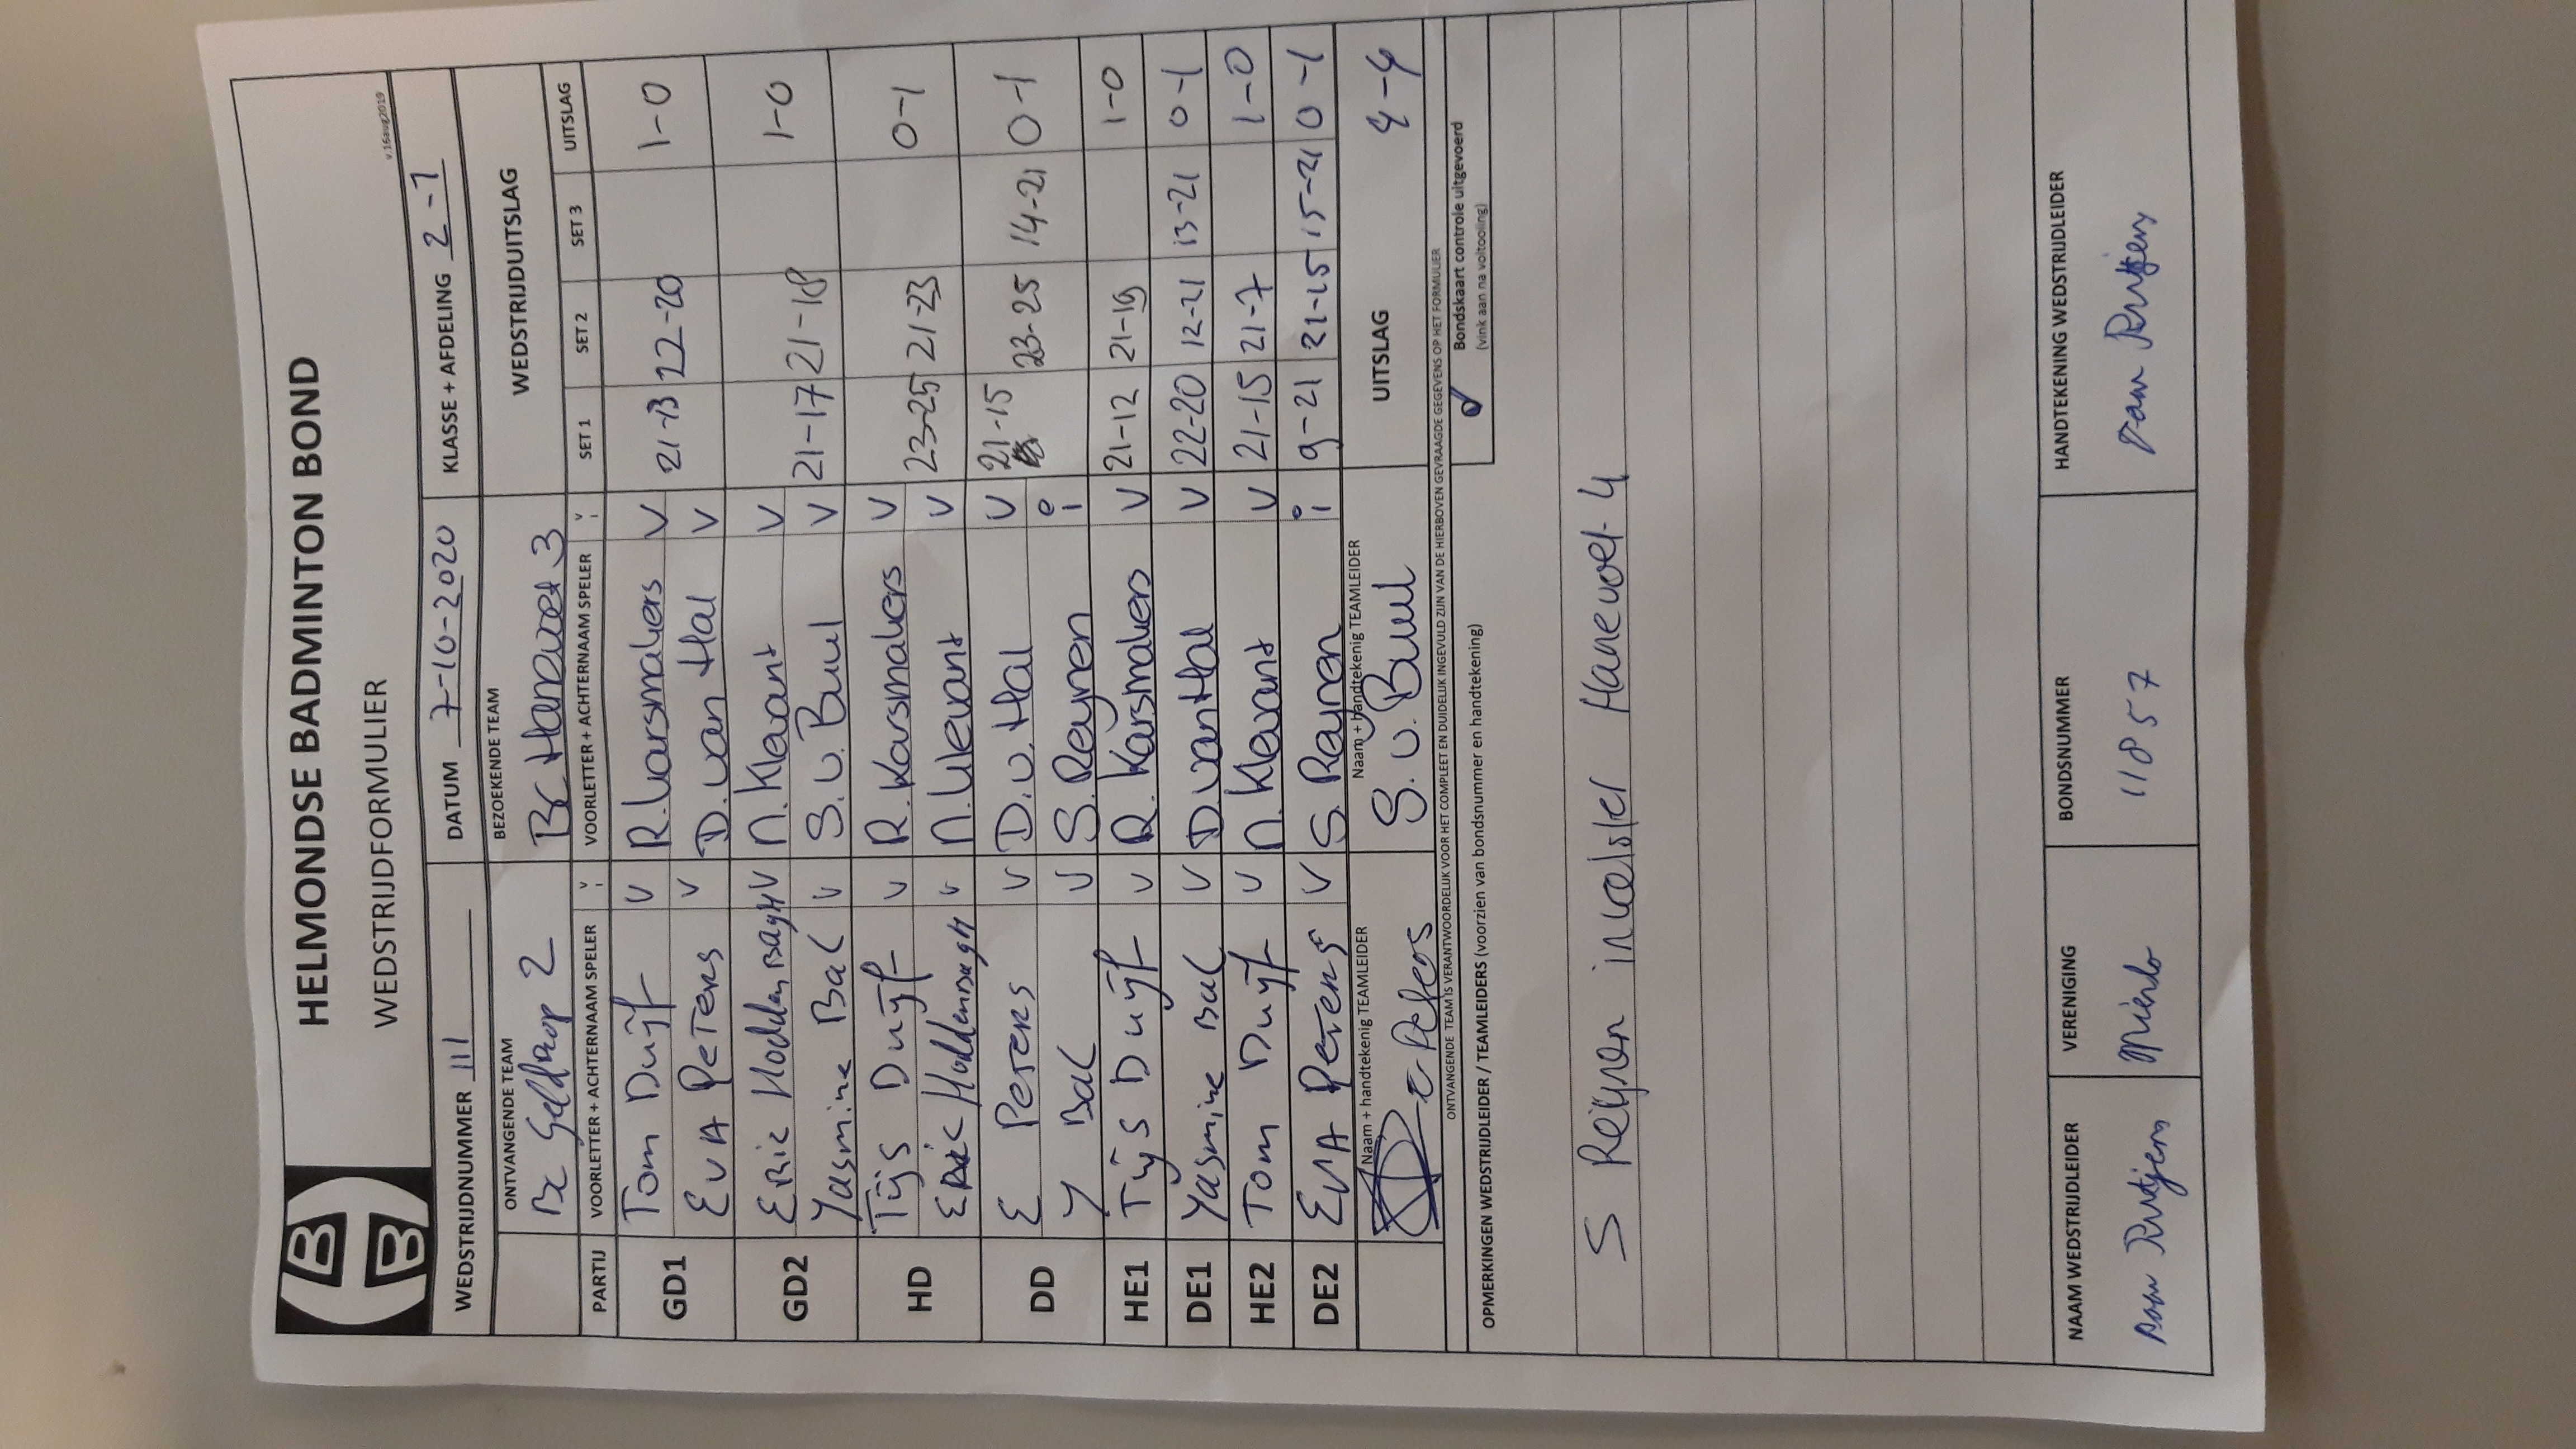 HELMONDSE BADMINTON BOND
WEDSTRIJDFORMULIER
v.16aug2019
WEDSTRIJDNUMMER 111 DATUM 7-10-2020 KLASSE + AFDELING 2-1
ONTVANGENDE TEAM BEZOEKENDE TEAM WEDSTRIJDUITSLAG
Bc Geldrop 2 Bc Hanevoet 3
PARTIJ VOORLETTER + ACHTERNAAM SPELER V/I VOORLETTER + ACHTERNAAM SPELER V/I SET 1 SET 2 SET 3 UITSLAG
GD1 Tom Duijf V R. Karsmakers V 21-13 22-20 1-0
EVA PETERS V D. van Hal V
GD2 ERIC V N. Klevant V 21-17 21-18 1-0
Yasmine Bal V S. v. Buul V
HD Tijs Duijf V R. Karsmakers V 23-25 21-23 0-1
ERIC V N. Klevant V
DD E PETERS V D. v. Hal V 21-15 23-25 14-21 0-1
Y Bal V S. Reijnen i
HE1 Tijs Duijf V R. Karsmakers V 21-12 21-19 1-0
DE1 Yasmine Bal V D. van Hal V 22-20 12-21 13-21 0-1
HE2 Tom Duijf V N. Klevant V 21-15 21-7 1-0
DE2 EVA PETERS V S. Reijnen i 9-21 21-15 15-21 0-1
Naam + handtekenig TEAMLEIDER Naam + handtekenig TEAMLEIDER UITSLAG 4-4
E Peters S. v. Buul
ONTVANGENDE TEAM IS VERANTWOORDELIJK VOOR HET COMPLEET EN DUIDELIJK INGEVULD ZIJN VAN DE HIERBOVEN GEVRAAGDE GEGEVENS OP HET FORMULIER
OPMERKINGEN WEDSTRIJDLEIDER / TEAMLEIDERS (voorzien van bondsnummer en handtekening)
Bondskaart controle uitgevoerd
(vink aan na voltooiing)
S Reijnen invalster Hanevoet 4
NAAM WEDSTRIJDLEIDER VERENIGING BONDSNUMMER HANDTEKENING WEDSTRIJDLEIDER
Mierlo 11857